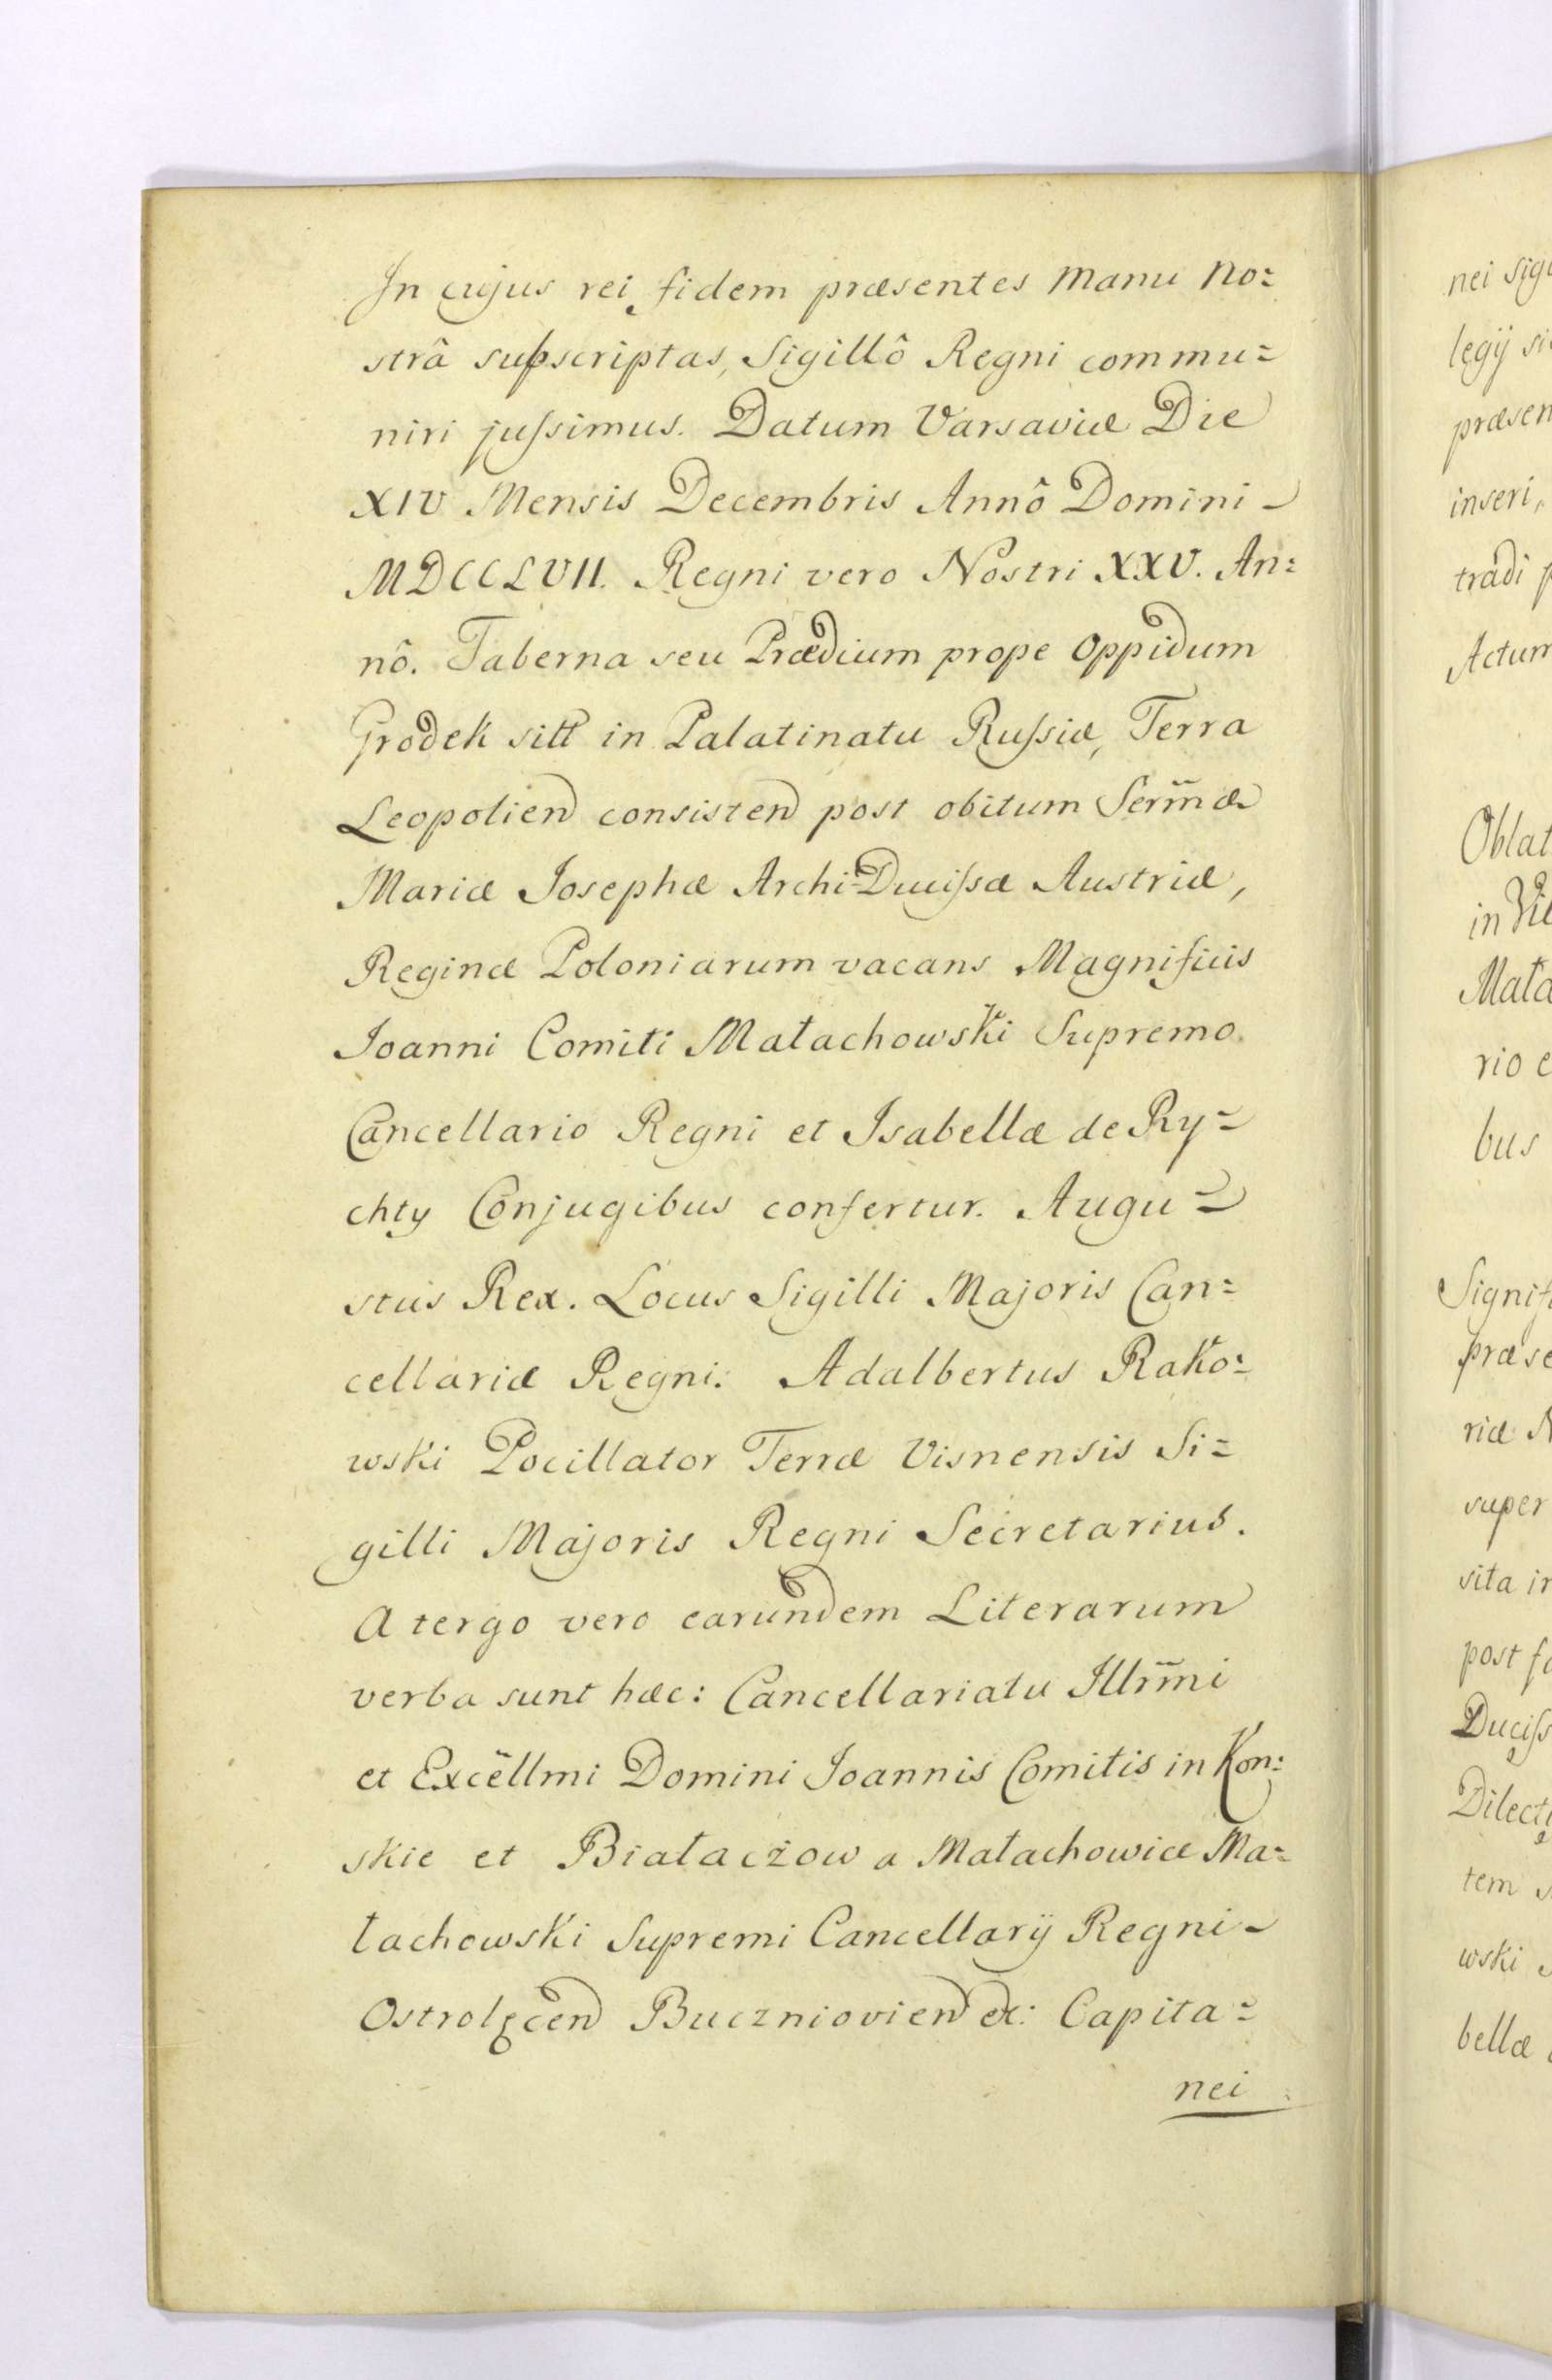 In cujus rei fidem præsentes manu no=
strâ subscriptas, Sigillô Regni commu=
niri jussimus. Datum Varsaviæ Die
XIV Mensis Decembris Annô Domini
MDCCLVII. Regni vero Nostri XXV. An=
nô. Taberna seu Prædium prope Oppidum
Grodek sitt in Palatinatu Russiæ, Terra
Leopolien consisten post obitum Serm̃æ
Mariæ Josephæ Archi-Ducissæ Austriæ,
Reginæ Poloniarum vacans Magnificis
Joanni Comiti Małachowski Supremo
Cancellario Regni et Isabellæ de Ry=
chty Conjugibus confertur. Augu=
stus Rex. Locus Sigilli Majoris Can=
cellariæ Regni. Adalbertus Rako=
wski Pocillator Terræ Visnensis Si=
gilli Majoris Regni Secretarius.
A tergo vero earundem Literarum
verba sunt hæc: Cancellariatu Illrm̃i
et Excellmi Domini Joannis Comitis in Kon=
skie et Białaczow a Małachowice Ma=
łachowski Supremi Cancellarÿ Regni
Ostrolęcen Buczniovien &c: Capita=
nei
nei
legÿ
præsen
inseri,
tradi
Actum
Oblat
in
Mała
rio
bus
Signif
præse
riæ
super
sita in
post
Duciss
Dilect
tem
wski
bellæ